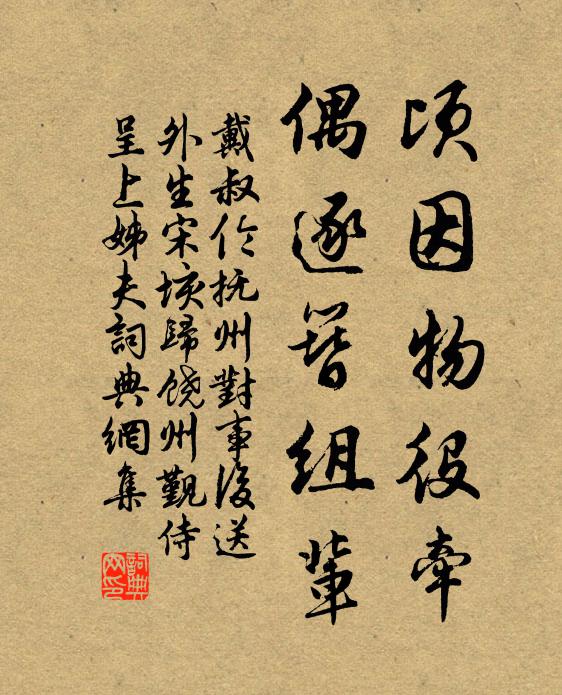 頃因物役牽
偶逐簪組輩
戴叔伦抚州對事後送
外生宋垓歸饶州觐侍
呈上姊夫詞典網集
詞典网印